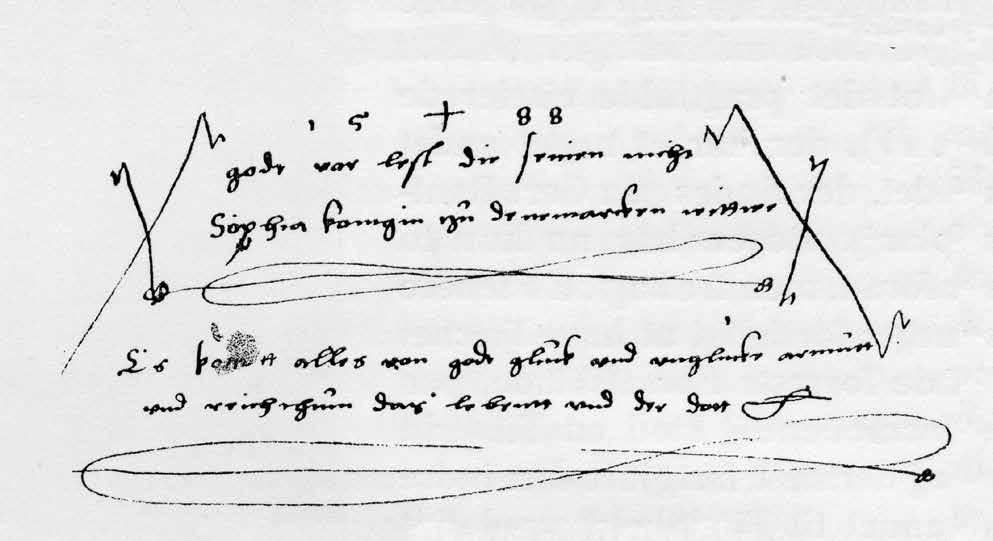 15 + 88
gode vor lest die seinen nicht
Sophia konigin zu denemarcken wittwe
Es komtt alles von gode glück und unglücke armutt
und reichthum das lebentt und der dott